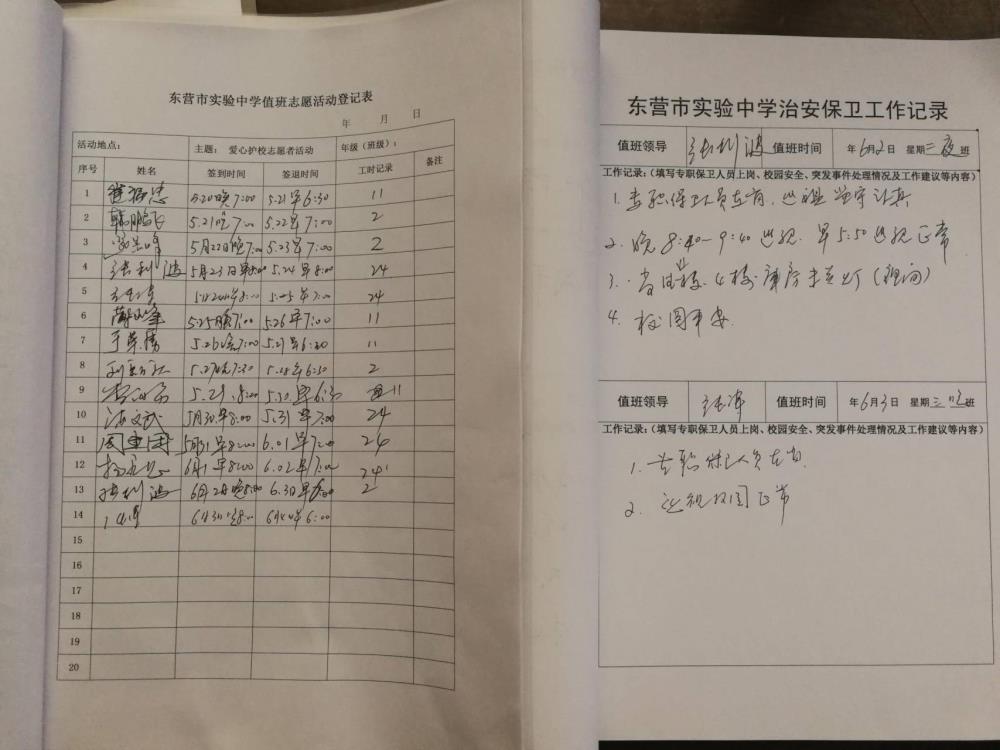 东营市实验中学值班志愿活动登记表
年 月 日
活动地点： 主题： 爱心护校志愿者活动 年级（班级）：
序号 姓名 签到时间 签退时间 工时记录 备注
1 5.20晚7:00 5.21早6:30 11
2 韩鹏飞 5.21晚7:00 5.22早7:00 2
3 5月22日晚7:00 5.23早7:00 2
4 张利波 5月23日早8:00 5.24早8:00 24
5 早8:00 早7:00 24
6 5.25晚7:00 5.26早7:00 11
7 于荣勝 5.26晚7:00 5.27早6:30 11
8 5.27晚7:30 5.28早6:30 2
9 5.29. 8:00 5.30.早6:30 11
10 5月30早8:00 5.31早7:00 24
11 5月31早8:00 6.01早7:00 24
12 6月1早8:00 6.02早7:00 24
13 张利波 6月2日晚8:00 6.3日早7:00 2
14 6月3日晚8:00 6月4日早6:00
15
16
17
18
19
20
东营市实验中学治安保卫工作记录
值班领导 张利波 值班时间 年6月2日 星期二夜班
工作记录：（填写专职保卫人员上岗、校园安全、突发事件处理情况及工作建议等内容）
1. 专职保卫人员在岗，巡逻 认真
2. 晚8:40-9:40巡视. 早5:50巡视正常
3. 4楼 （夜间）
4. 校园平安.
值班领导 值班时间 年6月3日 星期三晚班
工作记录：（填写专职保卫人员上岗、校园安全、突发事件处理情况及工作建议等内容）
1. 专职保卫人员在岗
2. 巡视校园正常